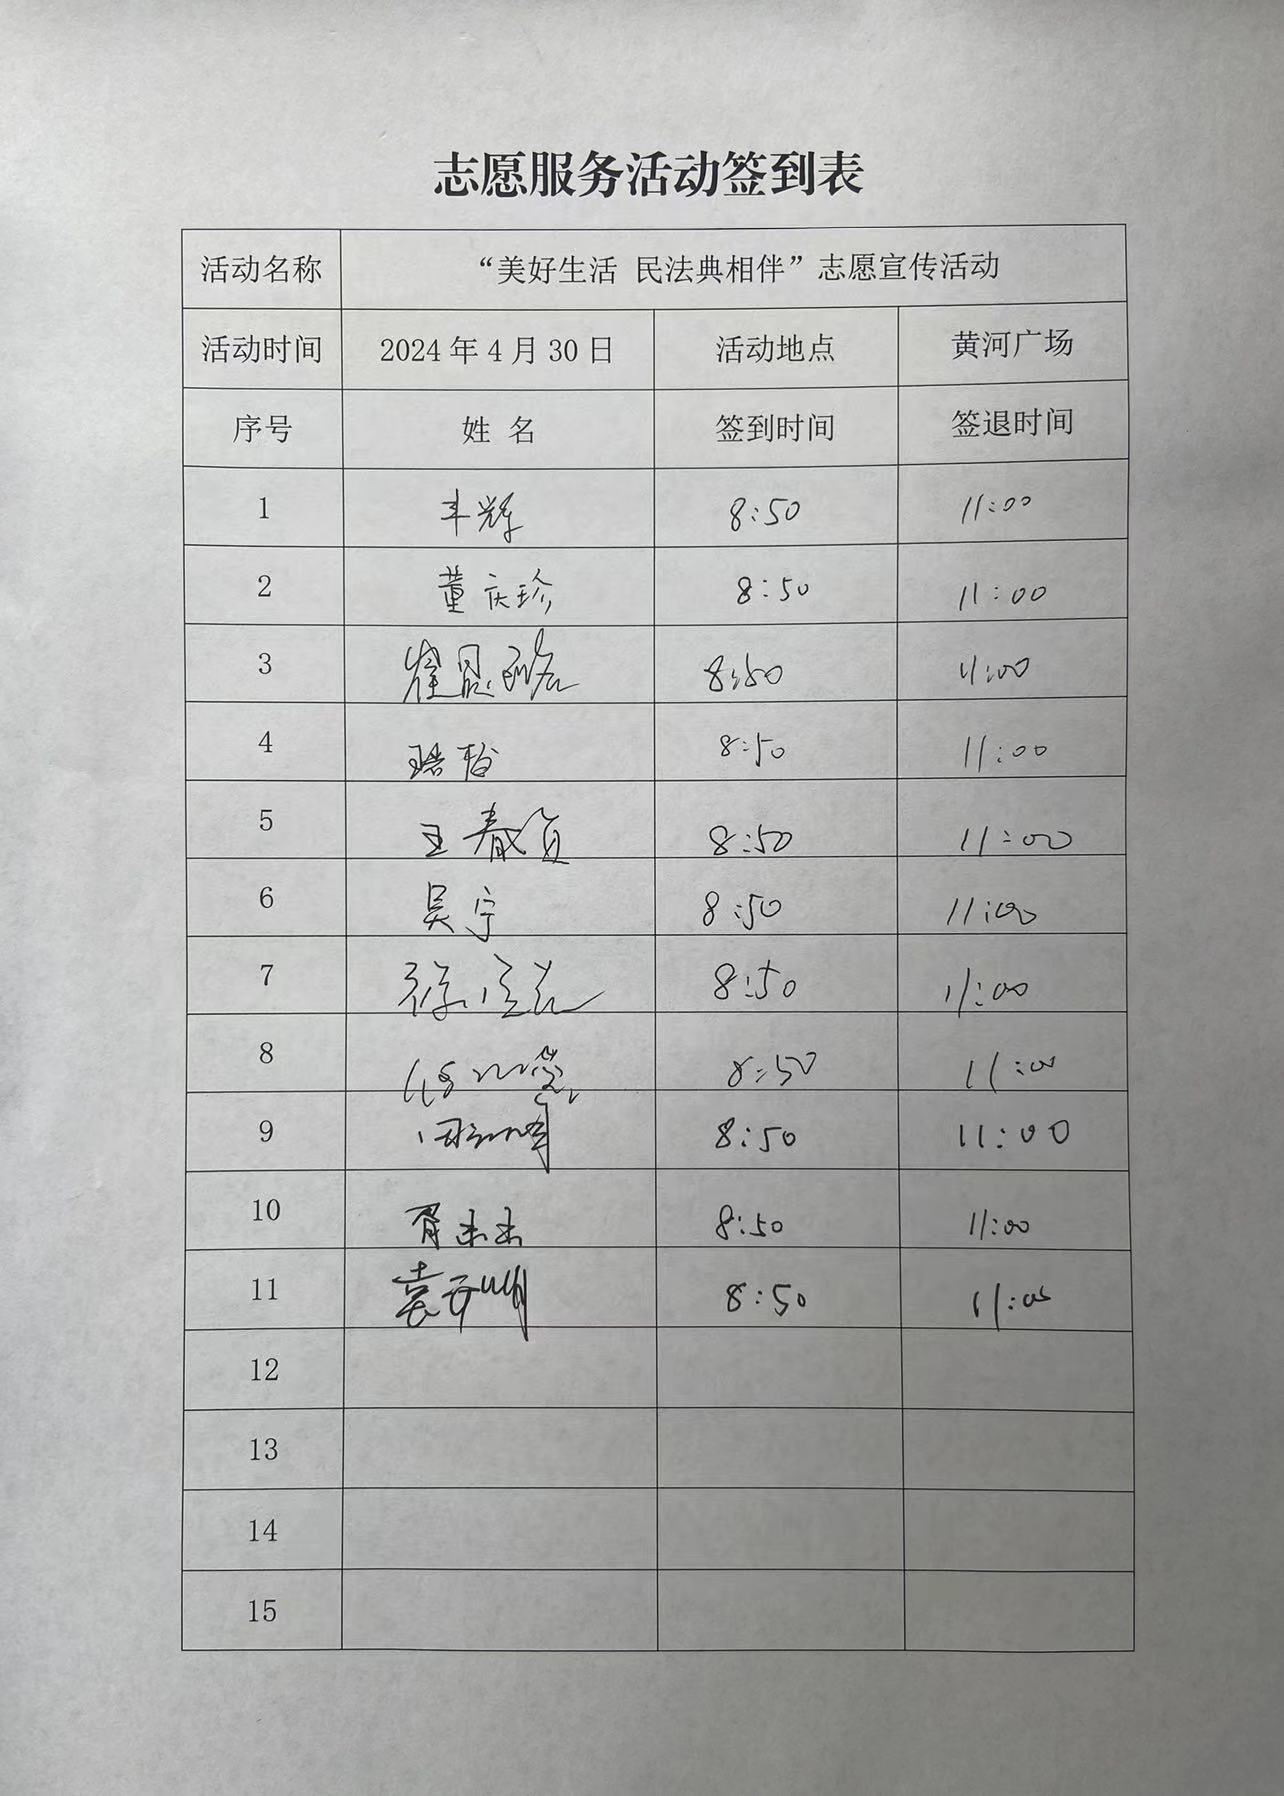 志愿服务活动签到表
活动名称 “美好生活 民法典相伴”志愿宣传活动
活动时间 2024年4月30日 活动地点 黄河广场
序号 姓 名 签到时间 签退时间
1 丰辉 8:50 11:00
2 董庆珍 8:50 11:00
3 8:50 11:00
4 8:50 11:00
5 王春 8:50 11:00
6 吴宁 8:50 11:00
7 徐 8:50 11:00
8 8:50 11:00
9 8:50 11:00
10 8:50 11:00
11 袁 8:50 11:00
12
13
14
15